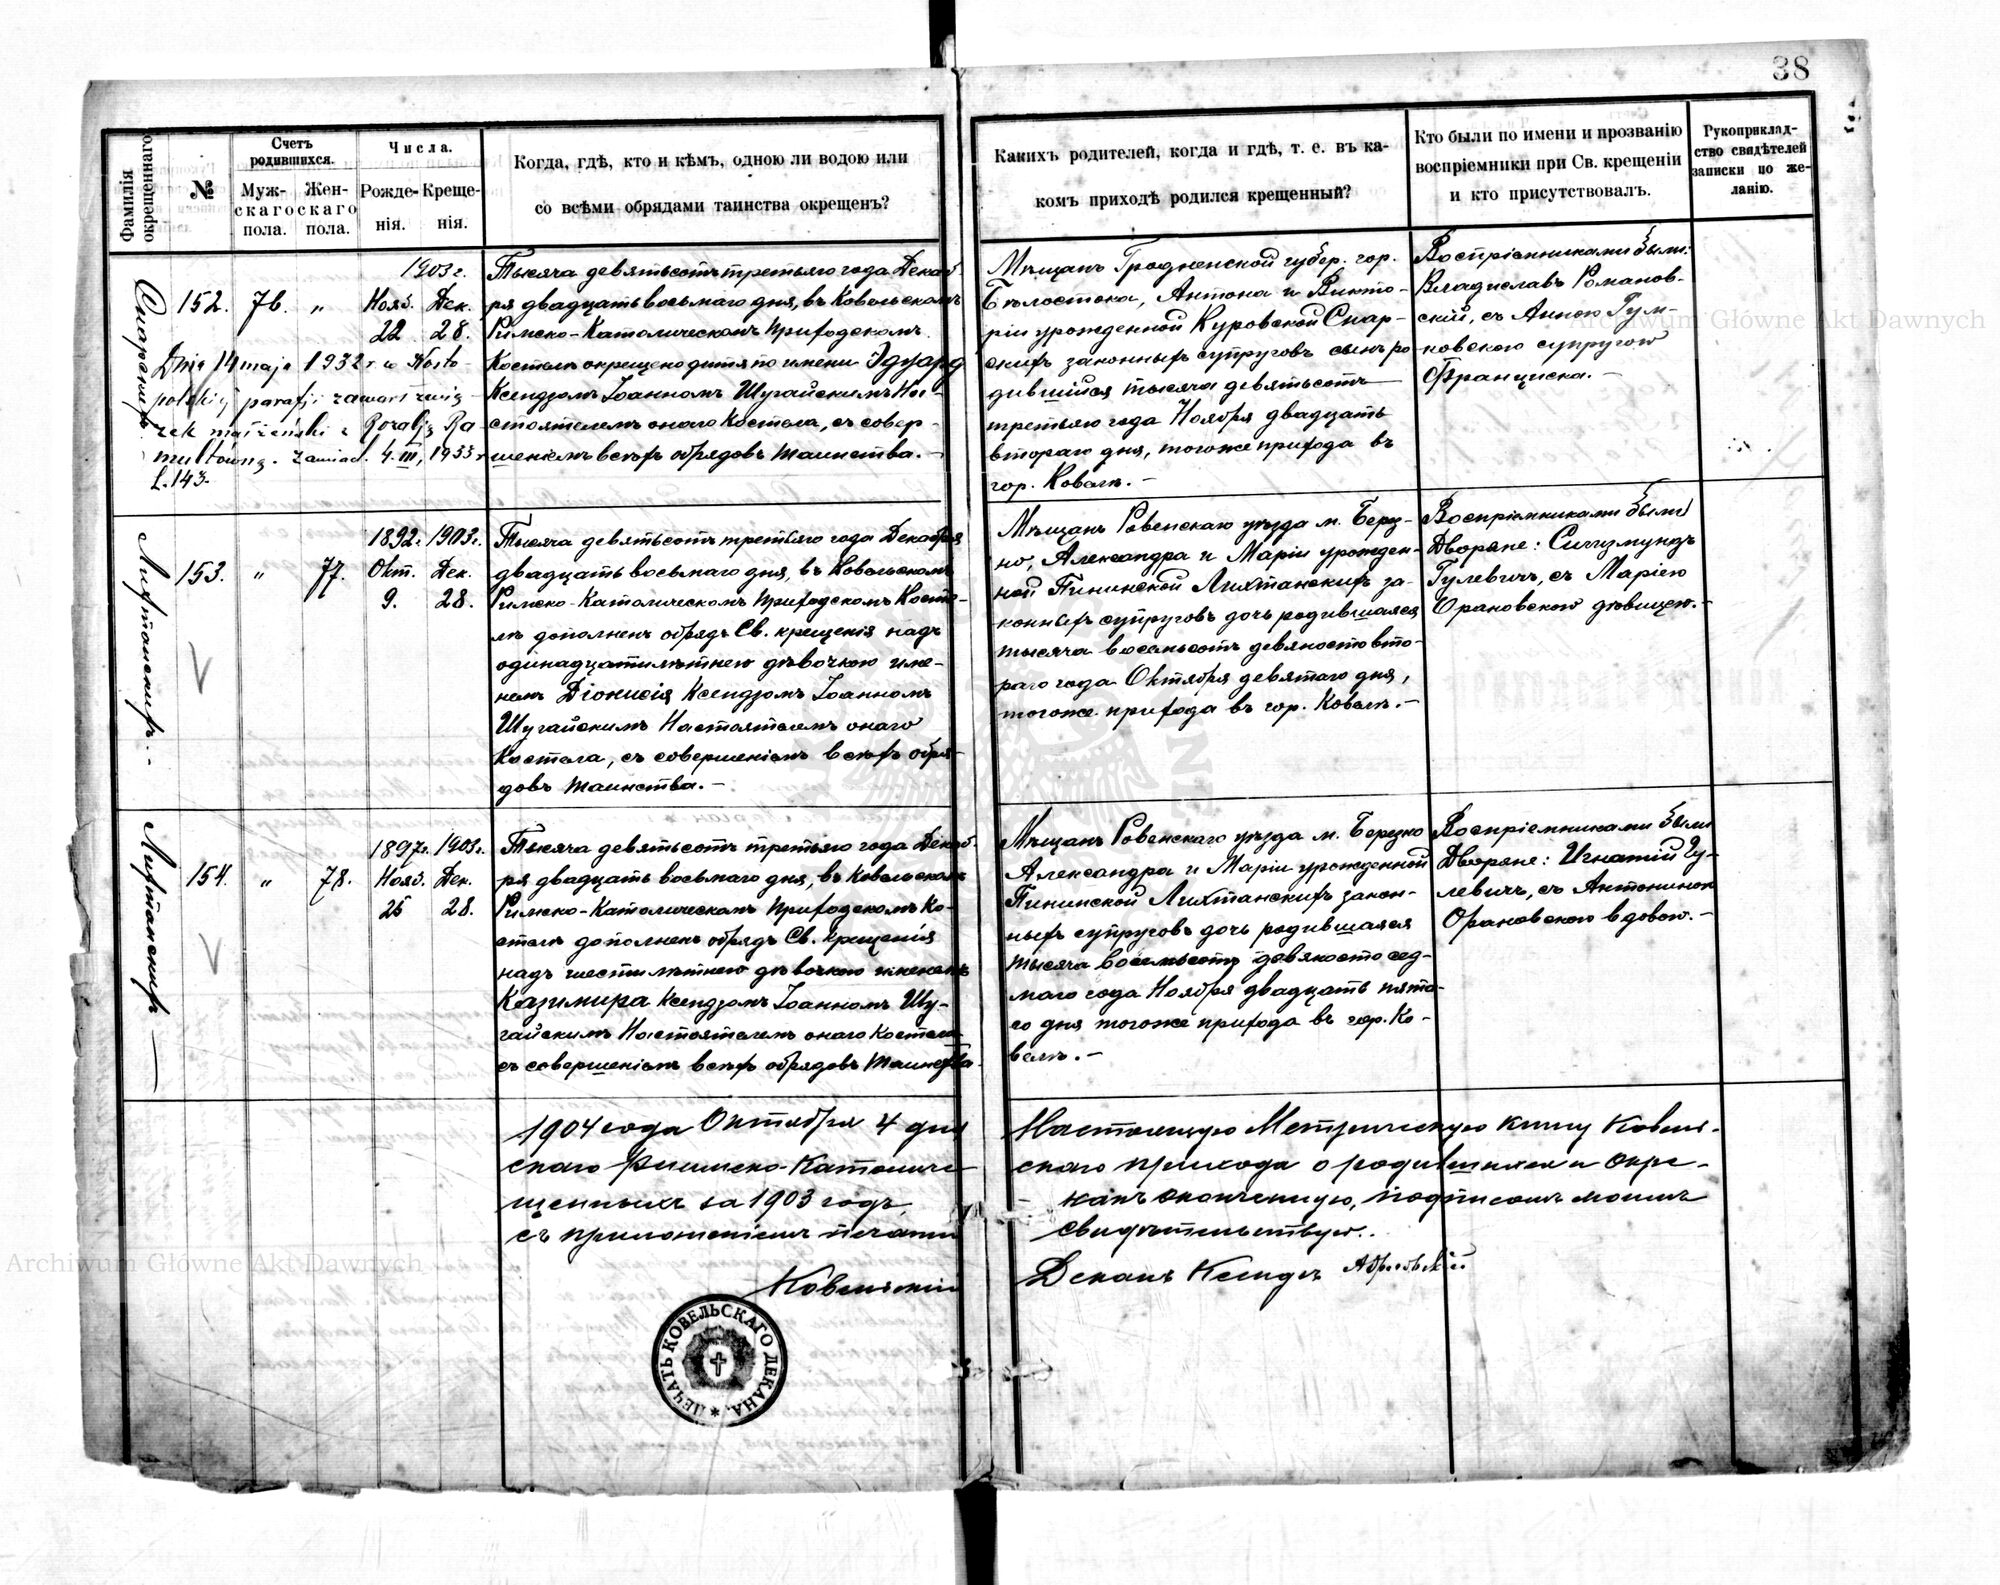 38
Фамилія окрещеннаго.
№
Счетъ родившихся.
Муж-
скаго
пола.
Жен-
скаго
пола.
Числа.
Рожде-
нія.
Креще-
нія.
Когда, гдѣ, кто и кѣмъ, одною ли водою или
со всѣми обрядами таинства окрещенъ?
Какихъ родителей, когда и гдѣ, т. е. въ ка-
комъ приходѣ родился крещенный?
Кто были по имени и прозванію
воспріемники при Св. крещеніи
и кто присутствовалъ.
Рукоприклад-
ство свидѣтелей
записки по же-
ланію.
152.
76.
"
1903 г.
Нояб. Дек.
22 28.
Dnia 14 maja 1932 r. w Nosto-
polskiej parafji zawarł zwią-
zek małżeński z Rozalją Ra
multówną. Zawiad. 4.III, 1933 r
L. 143.
Тысяча девятьсотъ третьяго года Декаб
ря двадцать восьмаго дня, въ Ковельскомъ
Римско-Католическомъ Приходскомъ
Костелѣ окрещено дитя по имени Эдуард
Ксендзомъ Іоанномъ Шугайскимъ На-
стоятелемъ онаго Костела, съ совер-
шеніемъ всѣхъ обрядовъ таинства.-
Мѣщанъ Гродненской губер. гор.
Бѣлостока, Антона и Викто-
ріи урожденной Куровской Снар-
скихъ законныхъ супруговъ сынъ ро
дившійся тысяча девятьсотъ
третьяго года Ноября двадцать
втораго дня, тогоже прихода въ
гор. Ковелѣ.-
Воспріемниками были:
Владиславъ Романов-
скій, съ Анною Гум-
новскою супругою
Франциска.-
Лихтанскихъ.-
153.
"
77.
1892 г. 1903 г.
Окт. Дек.
9. 28.
Тысяча девятьсотъ третьяго года Декабря
двадцать восьмаго дня, въ Ковельскомъ
Римско-Католическомъ Приходскомъ Косте-
лѣ дополненъ обрядъ Св. крещенія надъ
одинадцатилѣтнею дѣвочкою име-
немъ Діонисія Ксендзомъ Іоанномъ
Шугайскимъ Настоятелемъ онаго
Костела, съ совершеніемъ всѣхъ обря-
довъ таинства.-
Мѣщанъ Ровенскаго уѣзда м. Берез-
но, Александра и Маріи урожден-
ной Пининской Лихтанскихъ за-
конныхъ супруговъ дочь родившаяся
тысяча восемьсотъ девяносто вто-
раго года Октября девятаго дня,
тогоже прихода въ гор. Ковелѣ.-
Воспріемниками были
Дворяне: Сигизмундъ
Гулевичъ, съ Маріею
Орановскою дѣвицею.-
Лихтанскихъ
154.
"
78.
1897 г. 1903 г.
Нояб. Дек.
25 28.
Тысяча девятьсотъ третьяго года Декаб-
ря двадцать восьмаго дня, въ Ковельскомъ
Римско-Католическомъ Приходскомъ Ко-
стелѣ дополненъ обрядъ Св. крещенія
надъ шестилѣтнею дѣвочкою именемъ
Казимира Ксендзомъ Іоанномъ Шу-
гайскимъ Настоятелемъ онаго Костела
съ совершеніемъ всѣхъ обрядовъ таинства.
Мѣщанъ Ровенскаго уѣзда м. Березно
Александра и Маріи урожденной
Пининской Лихтанскихъ закон-
ныхъ супруговъ дочь родившаяся
тысяча восемьсотъ девяносто сед-
маго года Ноября двадцать пята-
го дня тогоже прихода въ гор. Ко-
велѣ.-
Воспріемниками были
Дворяне: Игнатій Гу-
левичъ, съ Антониною
Орановскою вдовою.-
1904 года Октября 4 дня Настоящую Метрическую книгу Ковель-
скаго Римско-Католиче- скаго прихода о родившихся и окре-
щенныхъ за 1903 годъ, какъ оконченную, подписомъ моимъ
съ приложеніемъ печати свидѣтельствую.
Ковельскій Деканъ Ксендзъ
ПЕЧАТЬ КОВЕЛЬСКАГО ДЕКАНА.
Archiwum Główne Akt Dawnych
Archiwum Główne Akt Dawnych